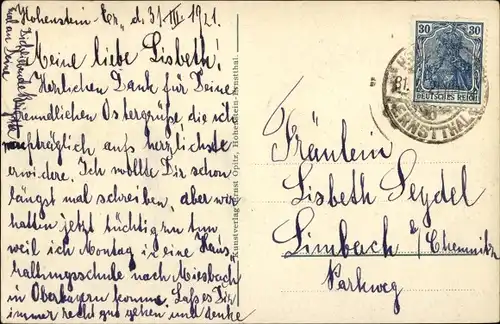 Hohenstein-Er., d. 31.III.1921.
Meine liebe Lisbeth!
Herzlichen Dank für Deine
freundlichen Ostergrüße die ich
nachträglich aufs herzlichste
erwidere. Ich wollte Dir schon
längst mal schreiben, aber wir
hatten jetzt tüchtig zu tun,
weil ich Montag i. eine Haus
haltungsschule nach Miesbach
in Oberbayern komme. Laß es Dir
immer recht gut gehen und denke
mal an Deine
Kunstverlag Ernst Opitz, Hohenstein-Ernstthal.
30 30
DEUTSCHES REICH
ERNSTTHAL
Fräulein
Lisbeth Seydel
Limbach b/Chemnitz
Parkweg